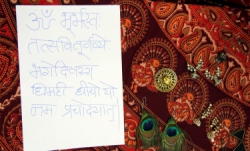 ॐ भुर्भुवः
तत्सवितुर्वण्ये
भर्गोदेवस्य
धिमही धीयो यो
नम प्रचोदयात्